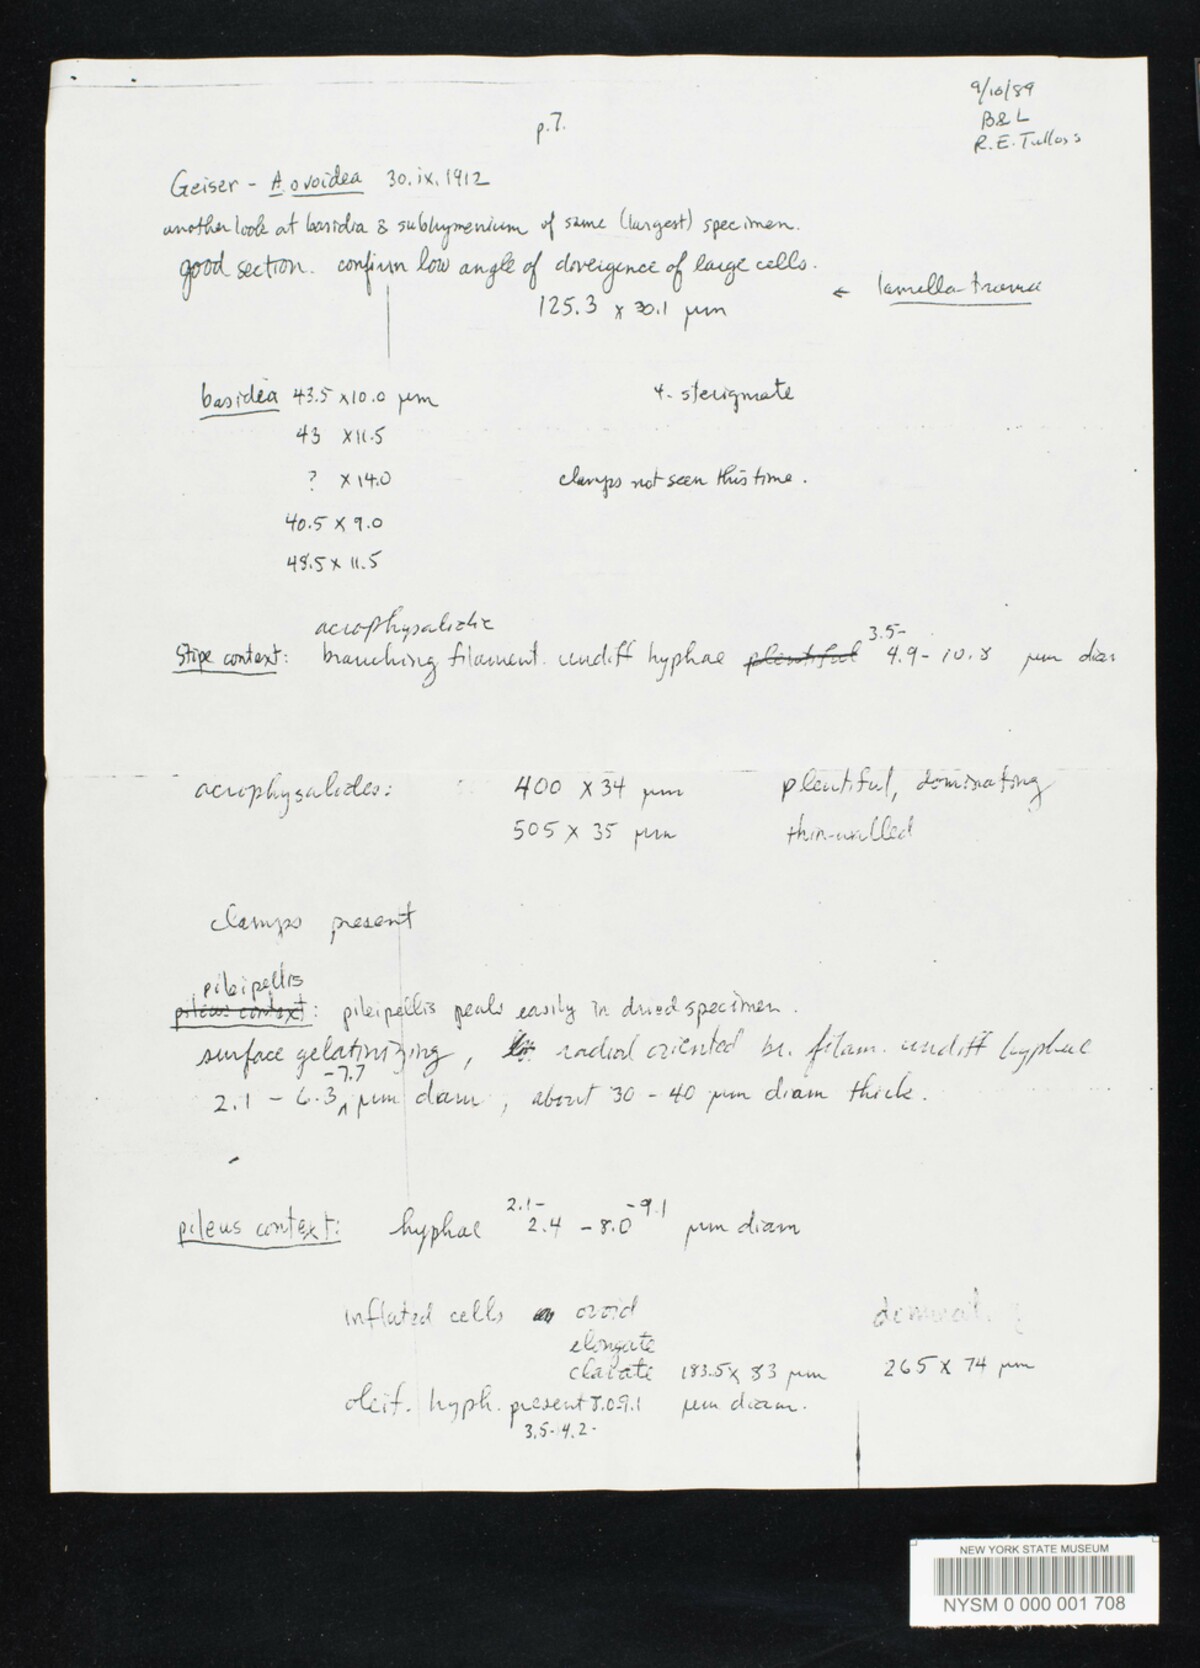 9/10/89
B&L
R.E. Tulloss
p.7.
Geiser - A. ovoidea 30.ix.1912
another look at basidia & subhymenium of same (largest) specimen.
good section. confirm low angle of divergence of large cells.
125.3 x 30.1 µm ← lamella trama
basidea 43.5 x 10.0 µm 4-sterigmate
43 x 11.5
? x 14.0 clamps not seen this time.
40.5 x 9.0
48.5 x 11.5
acrophysalidic
Stipe context: branching filament. undiff hyphae plentiful 3.5- 4.9 - 10.8 µm diam
acrophysalides: 400 x 34 µm plentiful, dominating
505 x 35 µm thin-walled
clamps present
pileipellis
pileus context: pileipellis peals easily in dried specimen.
surface gelatinizing, radial oriented br. filam. undiff hyphae
2.1 - 6.3 -7.7 µm diam, about 30 - 40 µm diam thick.
pileus context: hyphae 2.1- 2.4 - 8.0 -9.1 µm diam
inflated cells ovoid dominating
elongate
clavate 183.5 x 83 µm 265 x 74 µm
oleif. hyph. present 8.0-9.1 µm diam.
3.5- 4.2-
NEW YORK STATE MUSEUM
NYSM 0 000 001 708